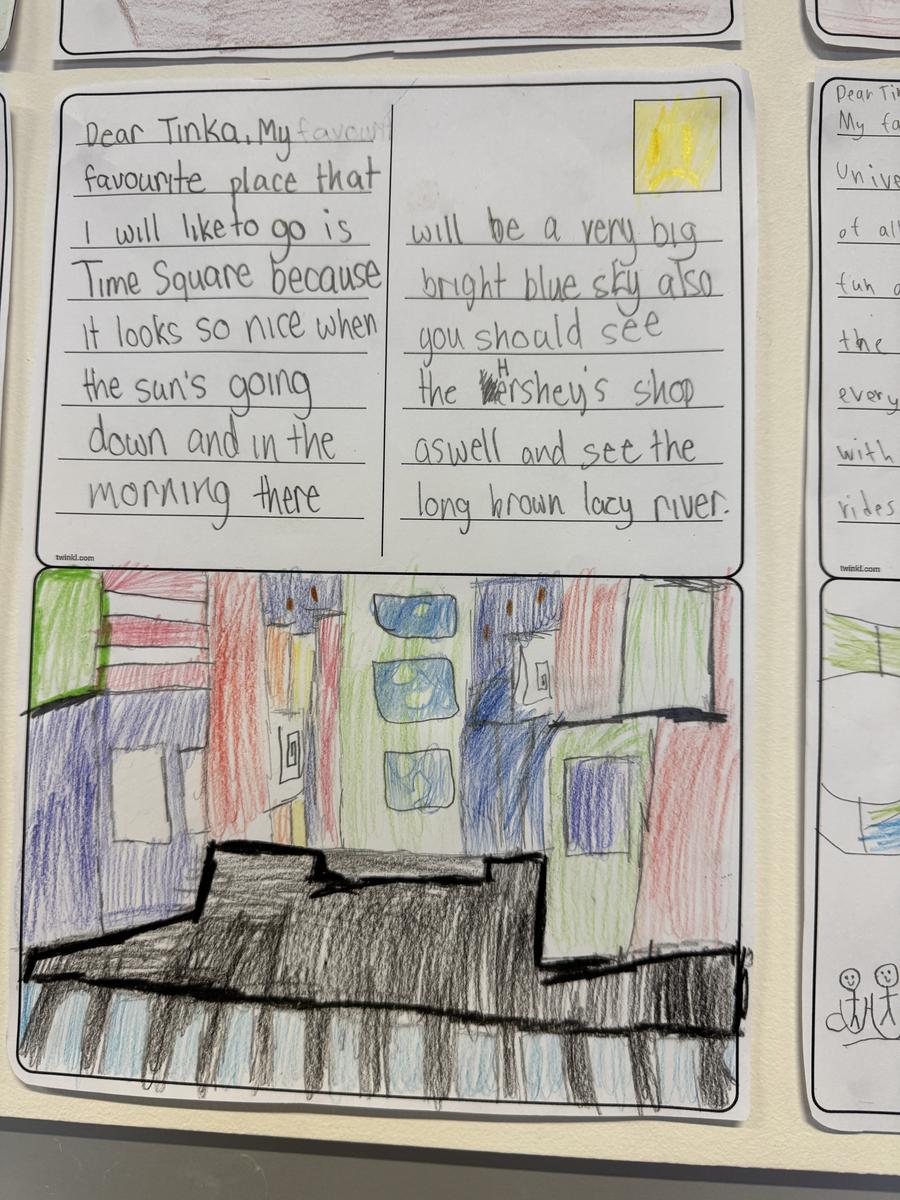 Dear Tinka, My favour
favourite place that
I will like to go is
Time Square because
it looks so nice when
the sun's going
down and in the
morning there
twinkl.com
will be a very big
bright blue sky also
you should see
the Hershey's shop
aswell and see the
long brown lacy river.
Dear Tin
My fa
Unive
of all
fun a
the
every
with
rides
twinkl.com